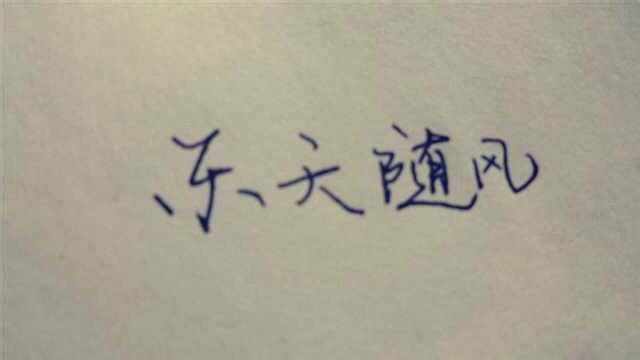 乐天随风